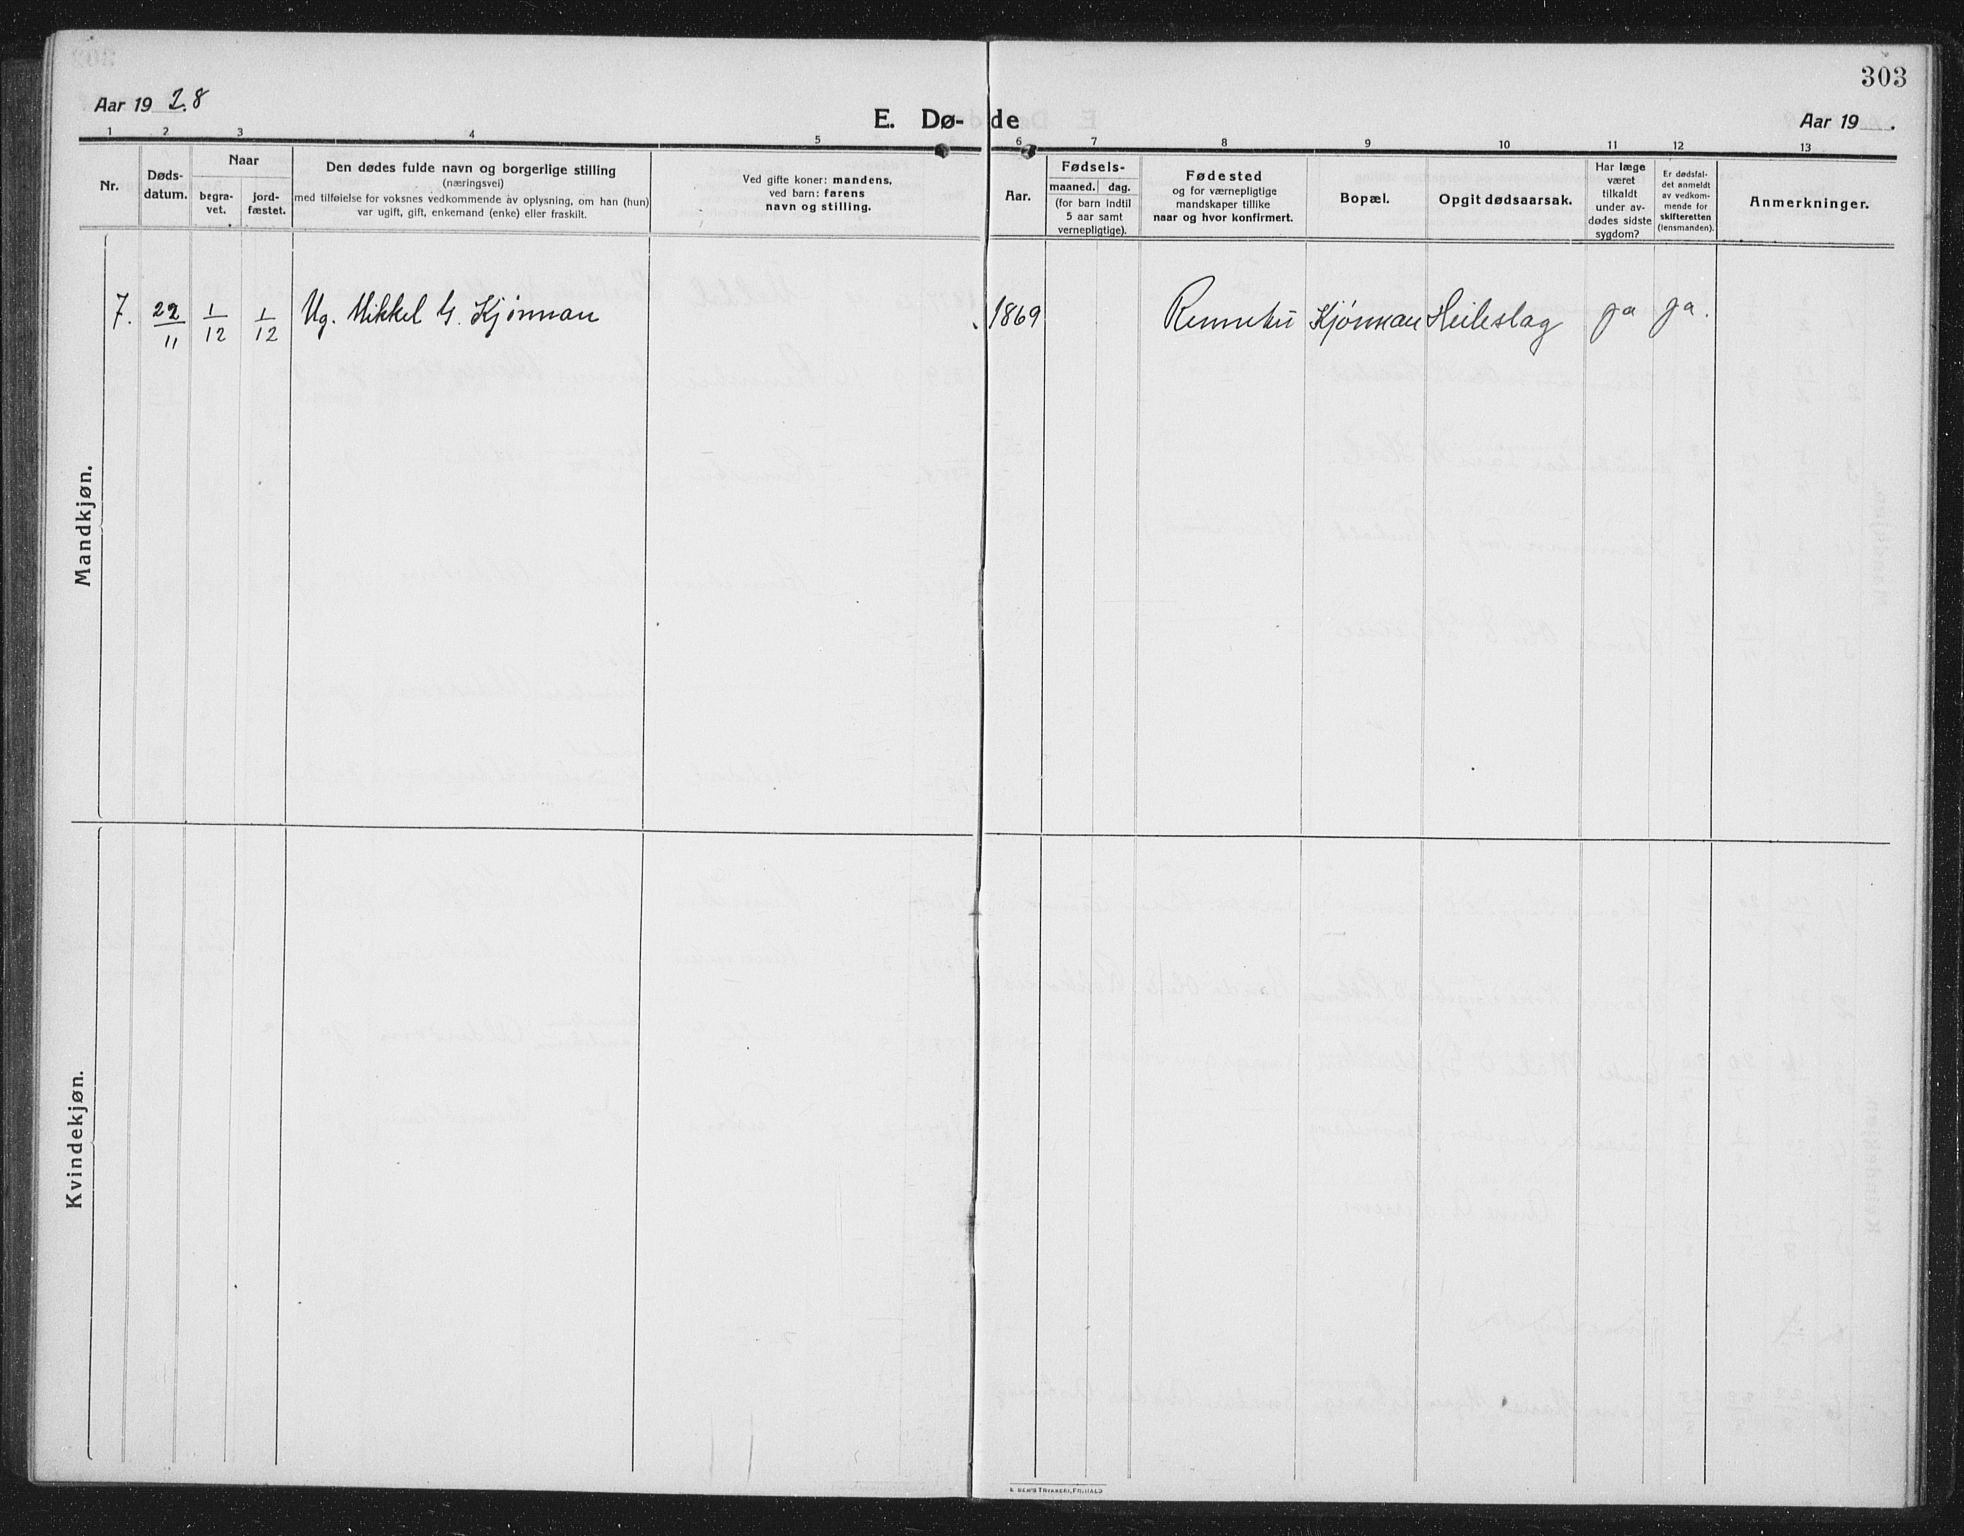 303
Aar 19 28
E. Dø- de
Aar 19 .
1 2 3 4 5 6 7 8 9 10 11 12 13
Nr.
Døds-
datum.
Naar
begra-
vet.
jord-
fæstet.
Den dødes fulde navn og borgerlige stilling
(næringsvei)
med tilføielse for voksnes vedkommende av oplysning, om han (hun)
var ugift, gift, enkemand (enke) eller fraskilt.
Ved gifte koner: mandens,
ved barn: farens
navn og stilling.
Aar.
Fødsels-
maaned. dag.
(for barn indtil
5 aar samt
vernepligtige).
Fødested
og for værnepligtige
mandskaper tillike
naar og hvor konfirmert.
Bopæl.
Opgit dødsaarsak.
Har læge
været
tilkaldt
under av-
dødes sidste
sygdom?
Er dødsfal-
det anmeldt
av vedkom-
mende for
skifteretten
(lensmanden).
Anmerkninger.
Mandkjøn.
7. 22/11 1/12 1/12 Ug. Mikkel G. Kjønnan 1869 Rennebu Kjønnan Heileslag ja ja.
Kvindekjøn.